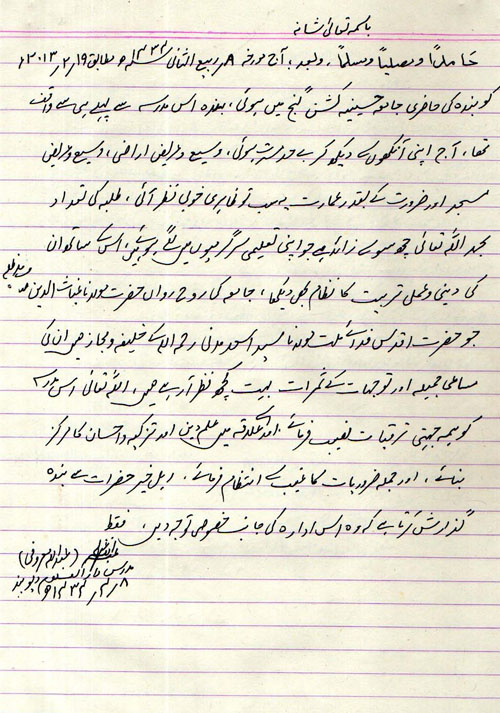 باسمہ تعالیٰ شانہ
حامداً ومصلیاً ومسلماً، وبعد؛ آج مورخہ ۸؍ ربیع الثانی ۱۴۳۴ھ مطابق ۱۹؍۲؍۲۰۱۳ء
کو بندہ کی حاضری جامعہ حسینیہ کشن گنج میں ہوئی، بندہ اس مدرسہ سے پہلے ہی سے واقف
تھا، آج اپنی آنکھوں سے دیکھ کر بے حد مسرت ہوئی، وسیع وعریض اراضی، وسیع وعریض
مسجد اور ضرورت کے بقدر عمارت یہ سب تو ظاہری خوبی نظر آئی، طلبہ کی تعداد
بحمد اللہ تعالیٰ چھ سو سے زائد ہے جو اپنی تعلیمی سرگرمیوں میں لگے ہوئے ہیں، اس کے ساتھ ان
کی دینی وعملی تربیت کا نظام بھی دیکھا، جامعہ کی روح رواں حضرت مولانا غیاث الدین صاحب مدظلہ
جو حضرت اقدس فدائے ملت مولانا سید اسعد مدنی رحمہ اللہ کے خلیفہ ومجاز ہیں ان کی
مساعی جمیلہ اور توجہات کے ثمرات بہت کچھ نظر آرہے ہیں، اللہ تعالیٰ اس مدرسہ
کو ہمہ جہتی ترقیات نصیب فرمائے، اور علاقہ میں علم دین اور تزکیہ واحسان کا مرکز
بنائے، اور جملہ ضروریات کا غیب سے انتظام فرمائے، اہل خیر حضرات سے بندہ
گذارش کرتا ہے کہ وہ اس ادارہ کی جانب خصوصی توجہ دیں، فقط
عبداللہ معروفی (عبداللہ معروفی)
مدرس دارالعلوم دیوبند
۸؍۴؍۱۴۳۴ھ